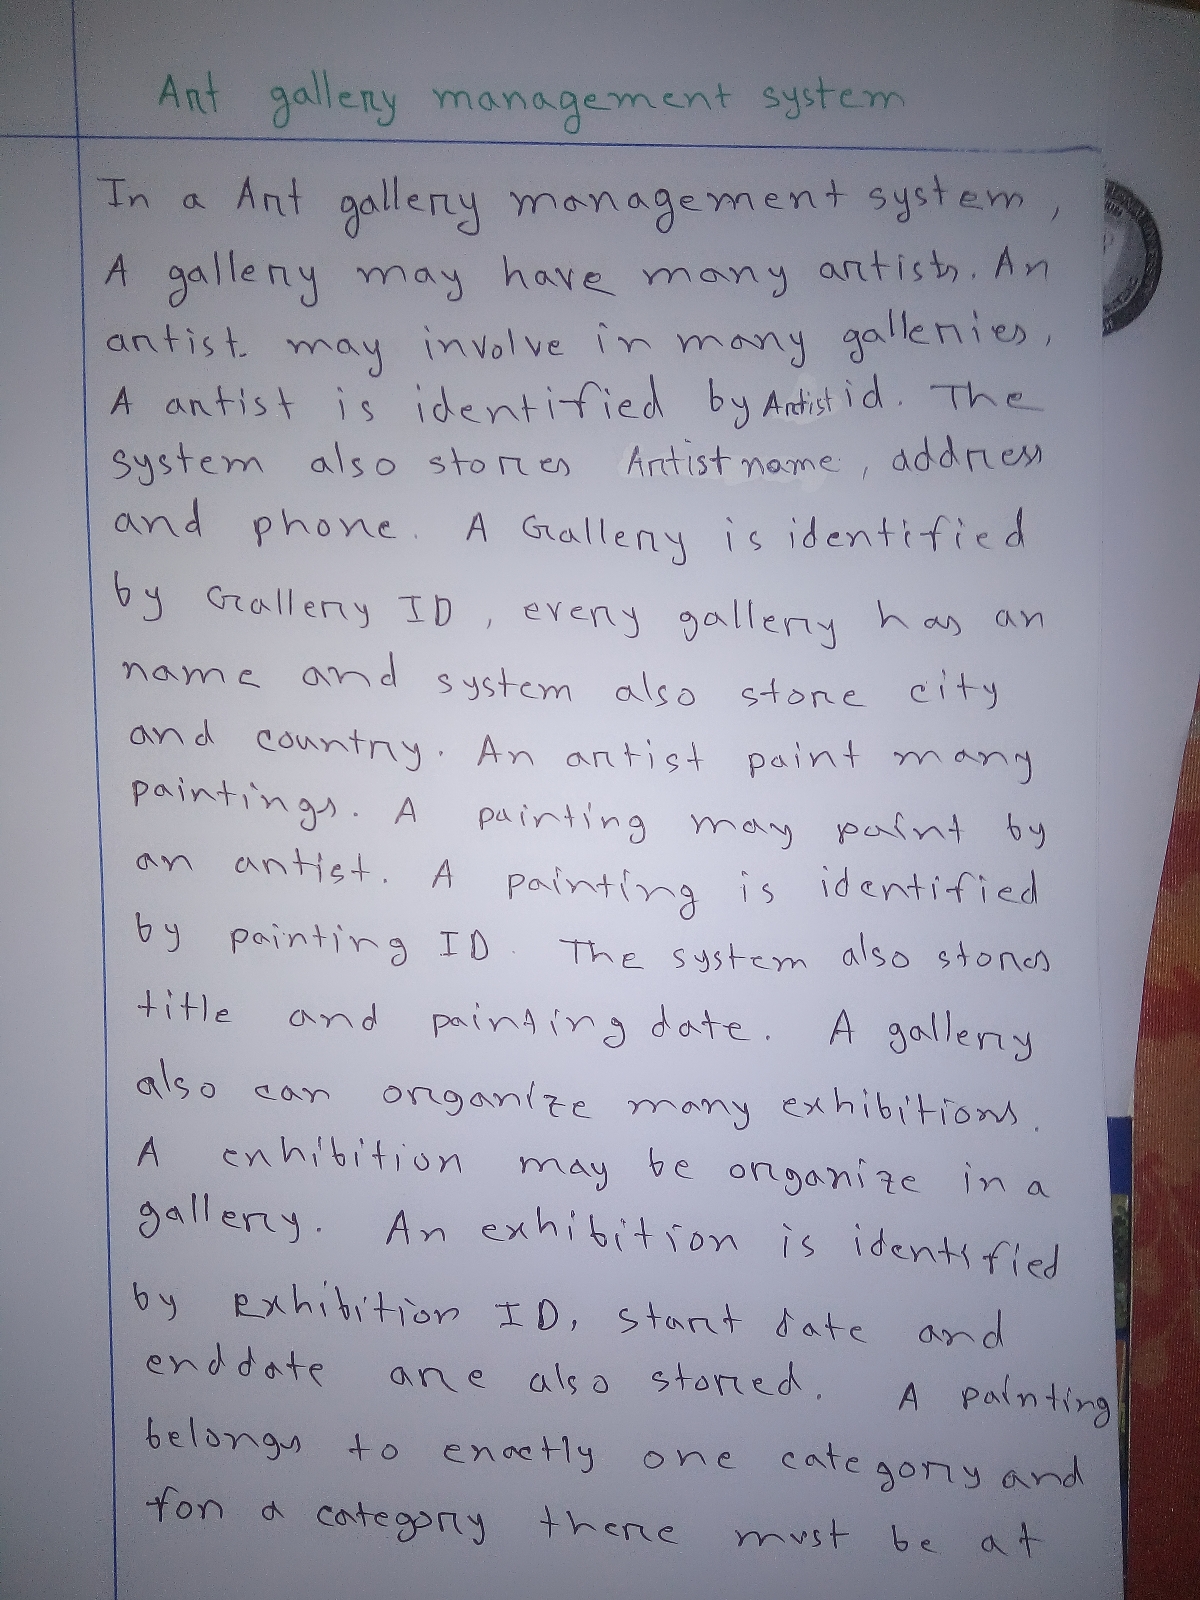 Art gallery management system
In a Art gallery management system,
A gallery may have many artists. An
artist may involve in many galleries,
A artist is identified by Artist id. The
system also stores Artist name, address
and phone. A Gallery is identified
by Gallery ID, every gallery has an
name and system also store city
and country. An artist paint many
paintings. A painting may paint by
an artist. A painting is identified
by painting ID. The system also stores
title and painting date. A gallery
also can organize many exhibitions.
A exhibition may be organize in a
gallery. An exhibition is identified
by Exhibition ID, start date and
end date are also stored. A painting
belongs to exactly one category and
for a category there must be at